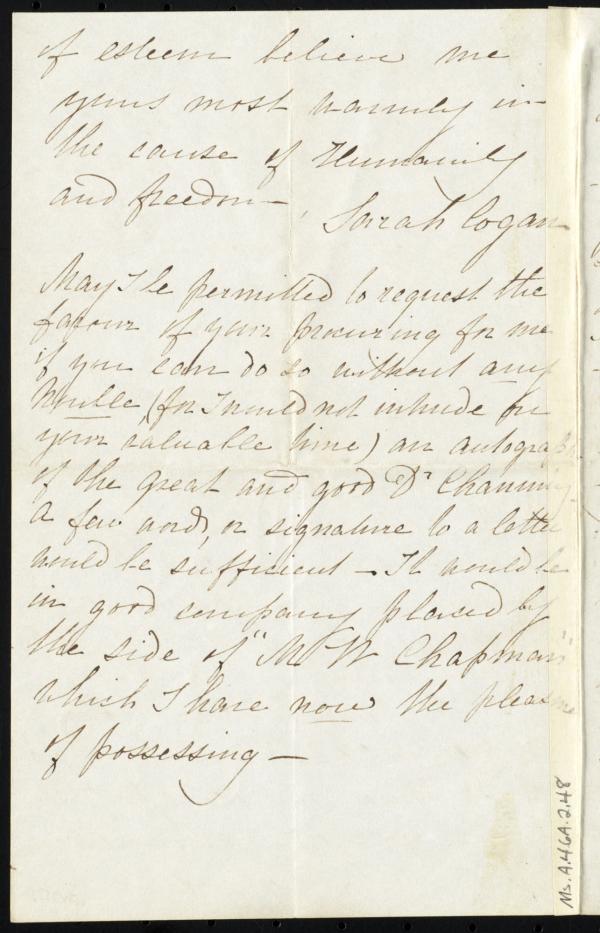 of esteem believe me
yours most warmly in
the cause of Humanity
and freedom—
Sarah Cogan
May I be permitted to request the
favour of your procuring for me
if you can do so without any
trouble, (for I would not intrude on
your valuable time) an autograph
of the great and good Dr Channing
a few words, or signature to a letter
would be sufficient — It would be
in good company placed by
the side of "M W Chapman"
which I have now the pleasure
of possessing —
Ms. A.4.6A.2.48